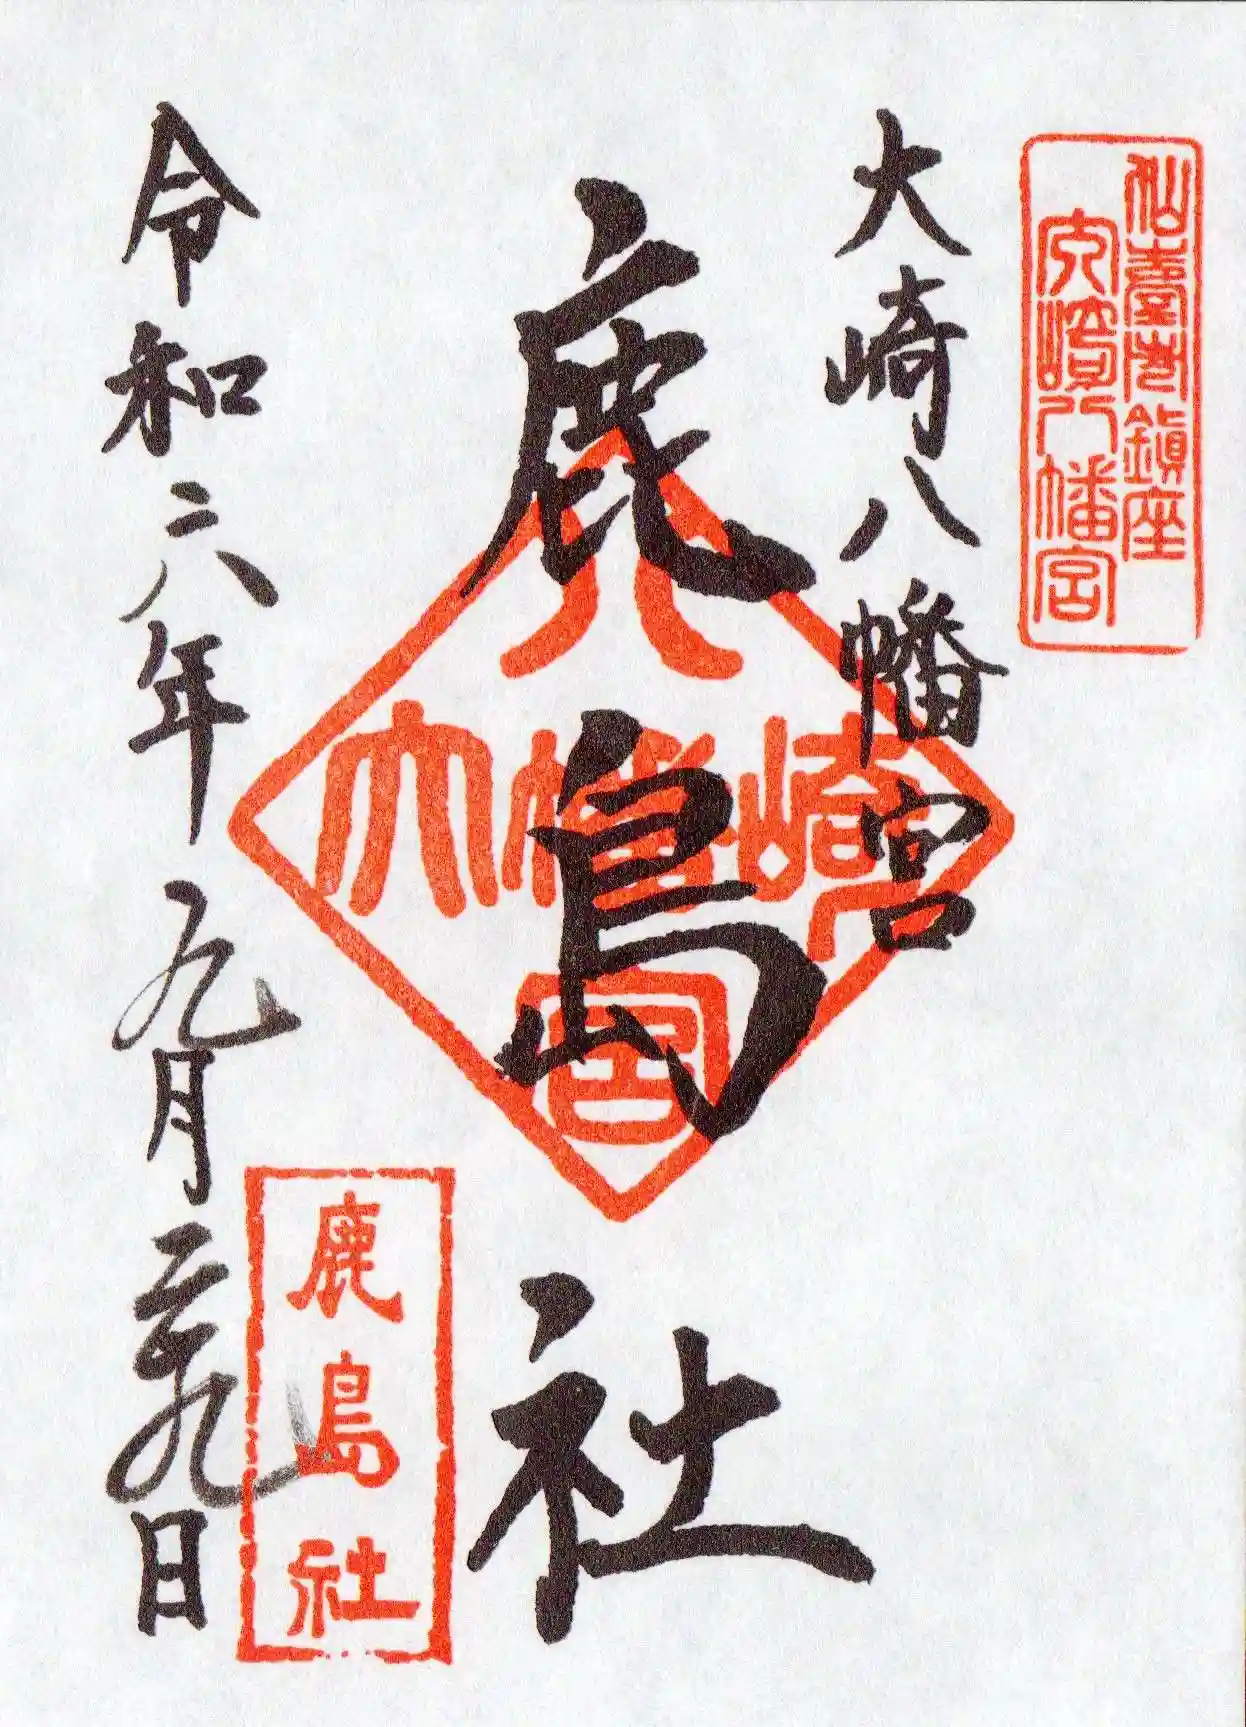 仙臺市鎮座
大崎八幡宮
大崎八幡宮
鹿島社
八
大幡崎
宮
鹿島社
令和六年九月二十九日